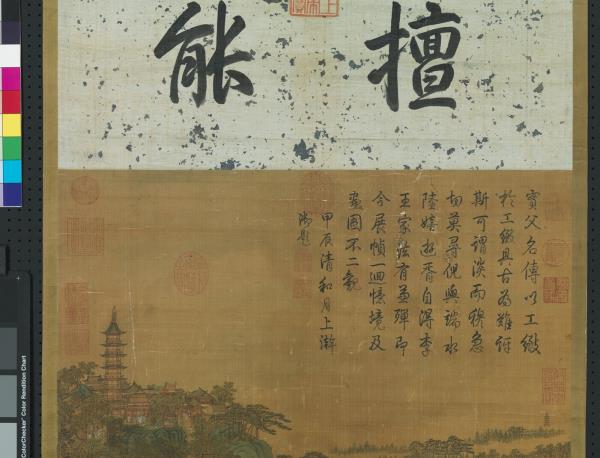 擅能
實父名傳以工緻
於工緻具古為難評
斯可謂淡而穆急
切莫尋倪與端水
陸嬉遊胥自得李
王家法有兼殫即
今展幀一迴憶境及
畫圖不二觀
甲辰清和月上澣
御題
ColorChecker Color Rendition Chart